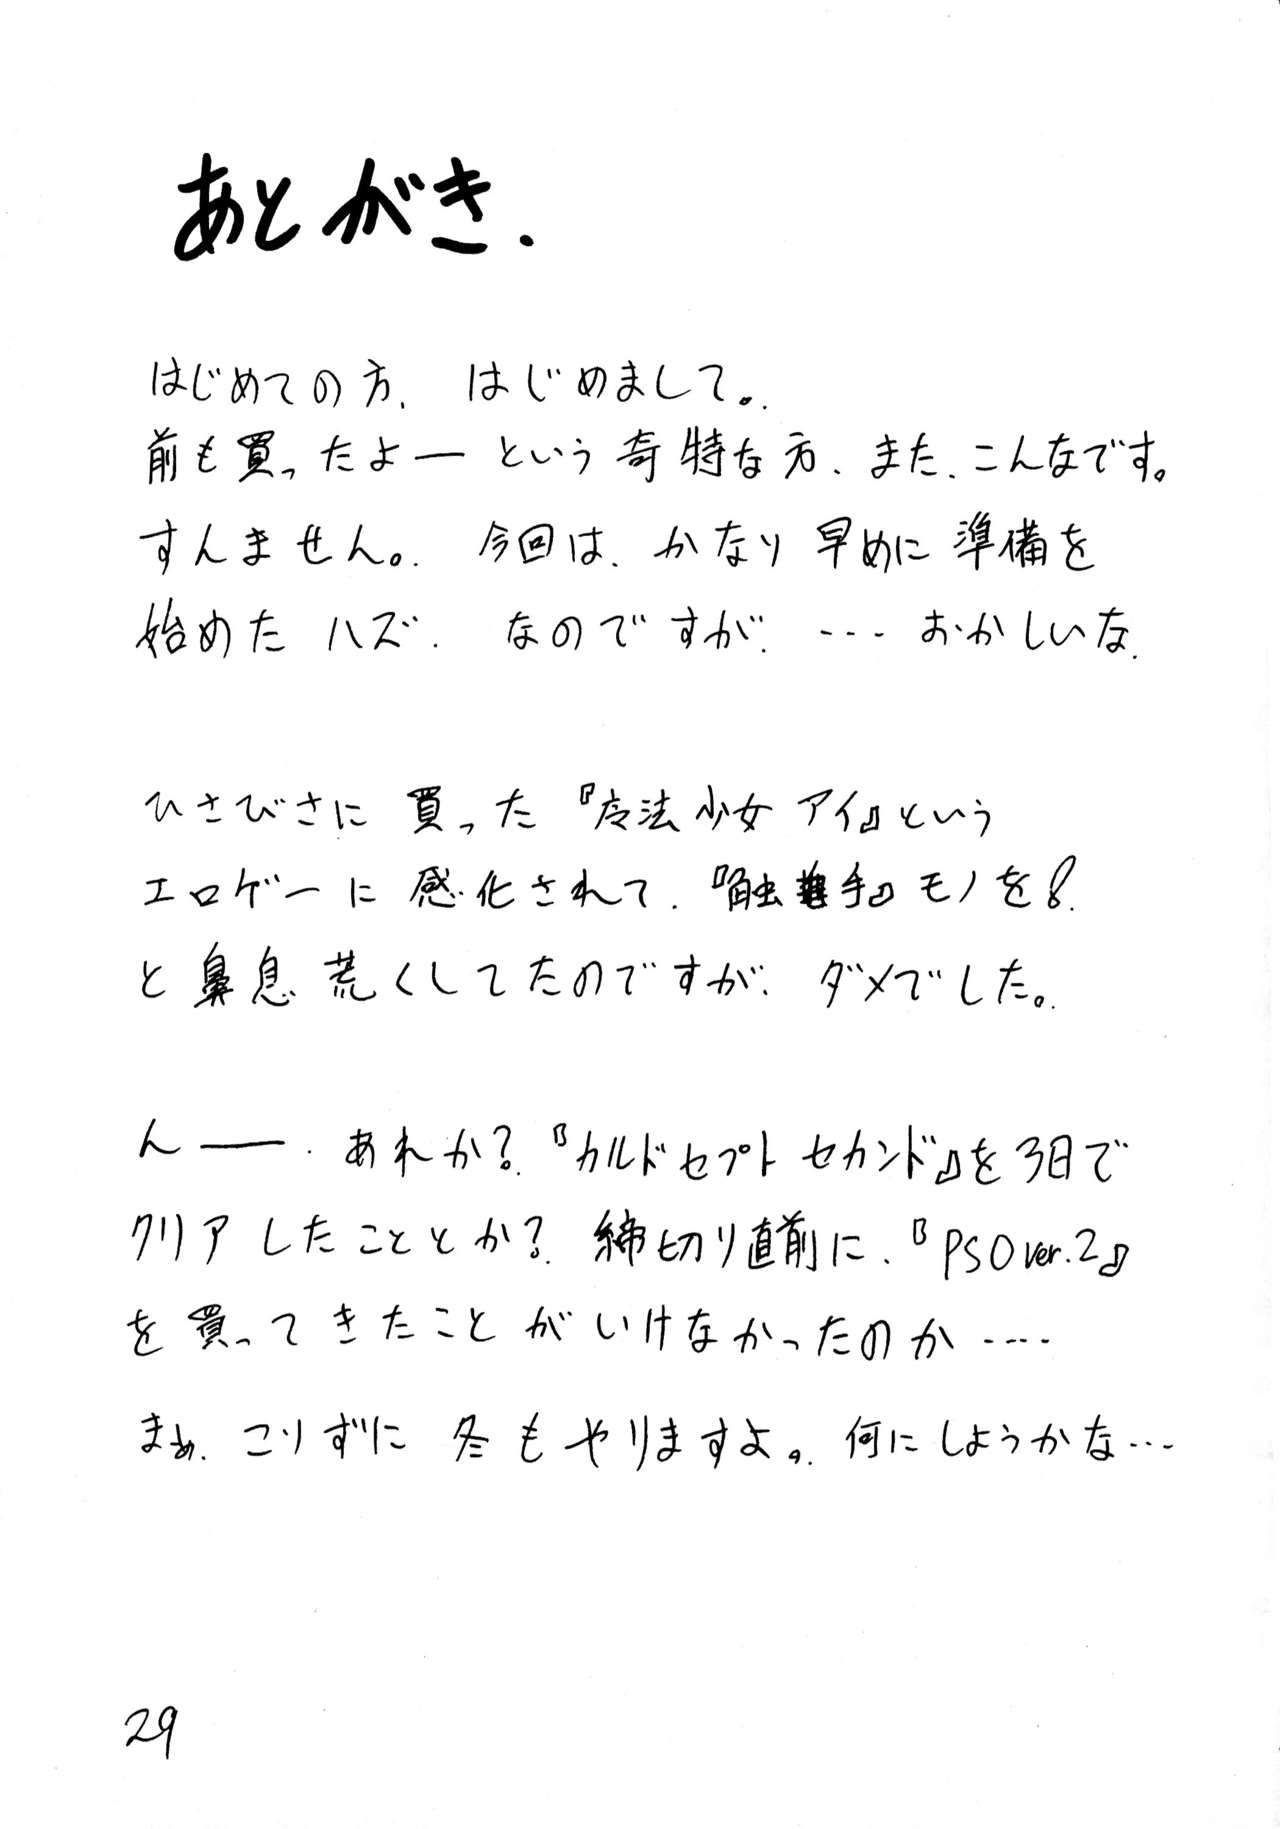 あとがき.
はじめての方、はじめまして。
前も買ったよーという奇特な方、また、こんなです。
すんません。今回は、かなり早めに準備を
始めたハズ、なのですが、・・・おかしいな、
ひさびさに買った『魔法少女アイ』という
エロゲーに感化されて、『触手』モノを!
と鼻息荒くしてたのですが、ダメでした。
んー、あれか?『カルドセプト セカンド』を3日で
クリアしたこととか?締切り直前に、『PSO ver.2』
を買ってきたことがいけなかったのか・・・・
まぁ、こりずに冬もやりますよ。何にしようかな・・・
29